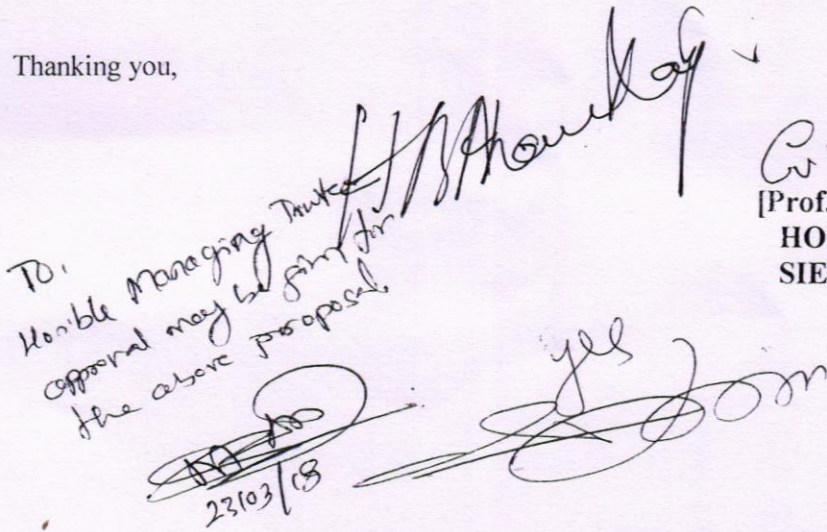 Thanking you,
[Prof.
HO
SIE
To,
Hon'ble Managing Trustee
approval may be given for
the above proposal.
yes
23/03/18